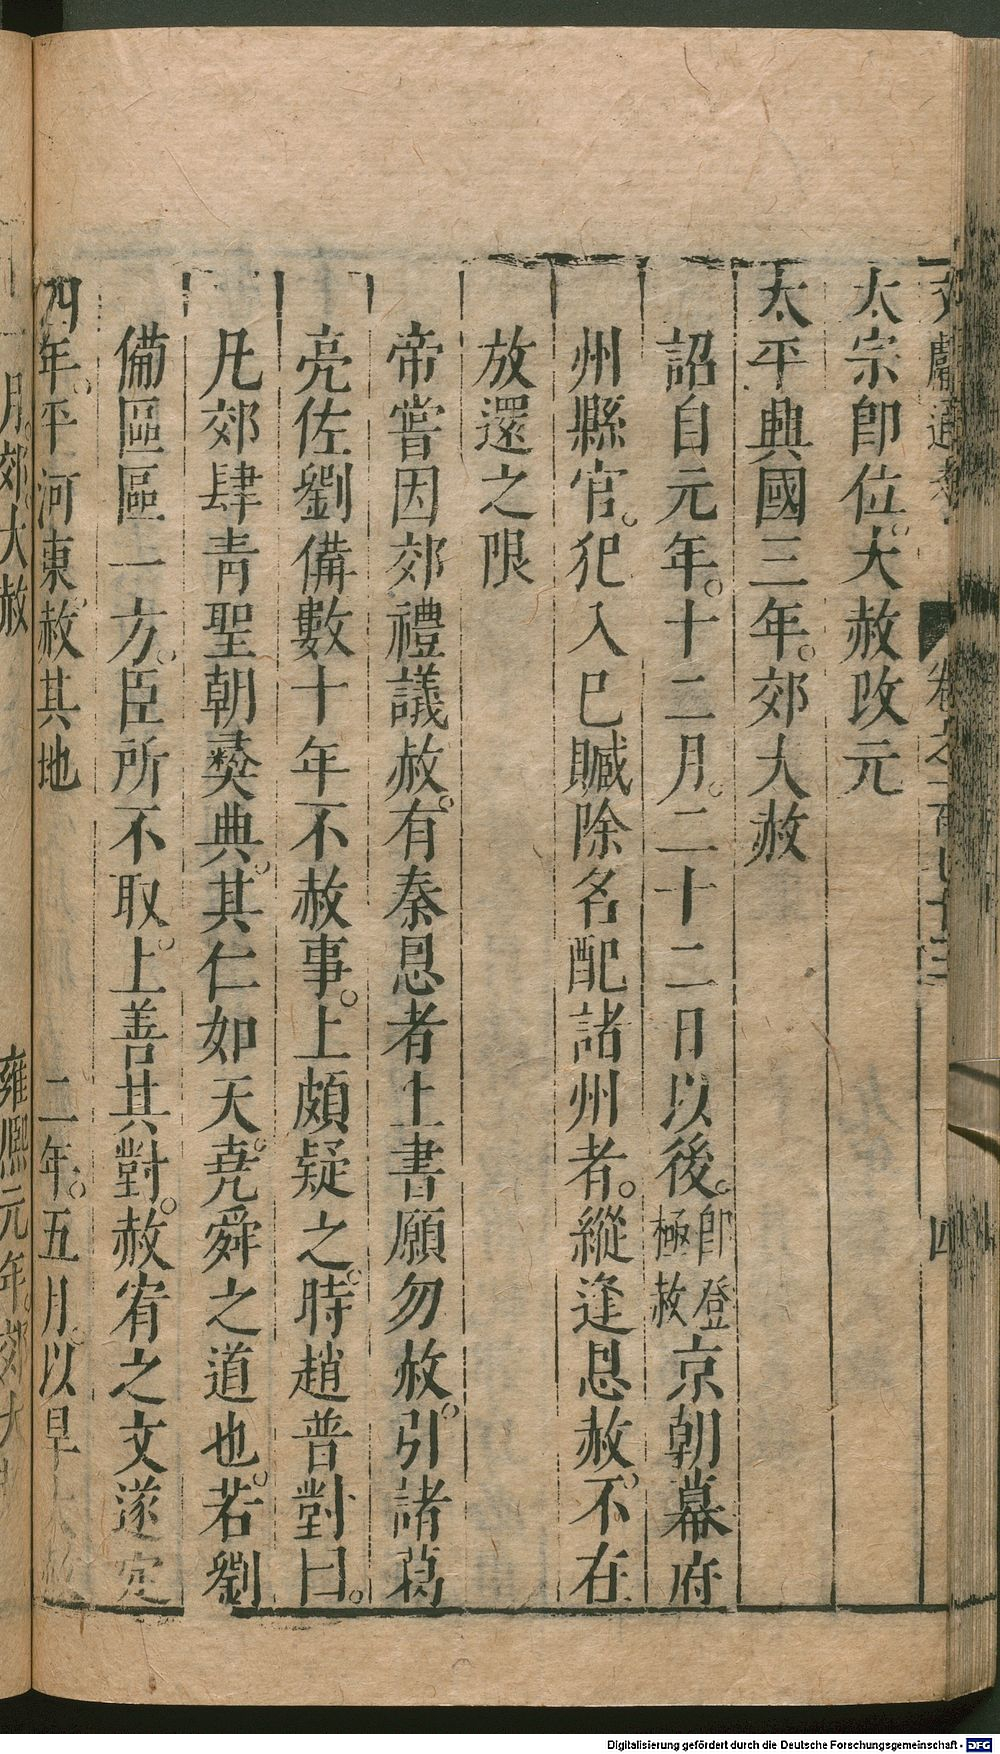 文獻通考 卷之一百七十三 四
太宗卽位。大赦改元
太平興國三年。郊大赦
詔自元年。十二月。二十二日以後。卽登極赦京朝幕府
州縣官。犯入巳贓除名配諸州者。縱逢恩赦。不在
放還之限
帝嘗因郊禮議赦。有秦恩者上書願勿赦。引諸葛
亮佐劉備數十年不赦事。上頗疑之。時趙普對曰。
凡郊肆眚聖朝彝典。其仁如天。堯舜之道也。若劉
備區區一方。臣所不取。上善其對。赦宥之文遂定
四年。平河東。赦其地 二年。五月。以旱
月。郊。大赦 雍熙元年。郊大
Digitalisierung gefördert durch die Deutsche Forschungsgemeinschaft - DFG